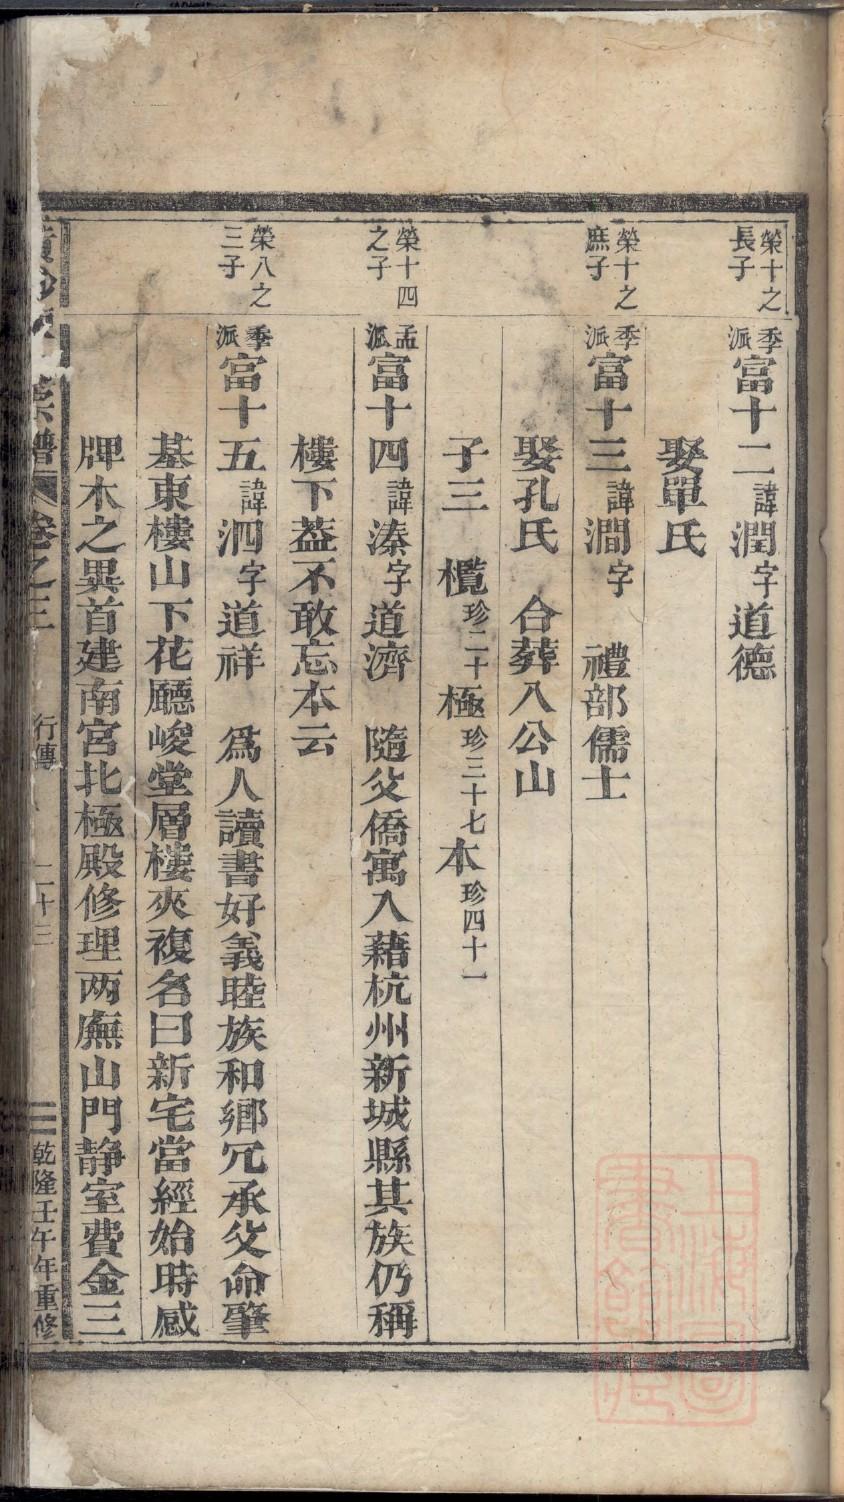 榮十之長子
季派富十二諱潤字道德
娶單氏
榮十之庶子
季派富十三諱澗字　禮部儒士
娶孔氏　合葬八公山
子三　欖珍二十極珍三十七本珍四十一
榮十四之子
孟派富十四諱溱字道濟　隨父僑寓入藉杭州新城縣其族仍稱
樓下葢不敢忘本云
榮八之三子
季派富十五諱泗字道祥　爲人讀書好義睦族和鄉冗承父命肇
基東樓山下花廳峻堂層樓夾複名曰新宅當經始時感
牌木之異首建南宮北極殿修理两廡山門静室費金三
宗譜　卷之三　行傳　二十三　乾隆壬午年重修
上海圖書館藏